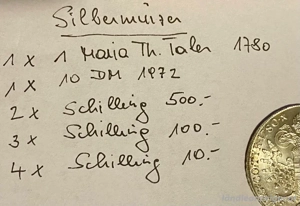 Silbermünzen
1 x 1 Maria Th. Taler 1780
1 x 10 DM 1972
2 x Schilling 500.-
3 x Schilling 100.-
4 x Schilling 10.-